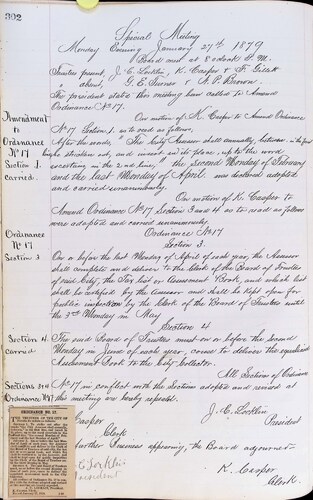 302
Special Meeting
Monday Evening January 27th 1879
Board met at 8 oclock P.M.
Trustees present, J. C. Locklin, K. Casper & F. Gillett
" absent, G. E. Turner & A. P. Brown.
The president stated this meeting was called to Amend
Ordinance No 17.
Amendment
to
Ordinance
No 17
Section 1.
carried.
On motion of K. Casper to Amend Ordinance
No 17 Section 1. as to read as follows,
After the words, "The City Assessor shall annually, between, in the first
line, and insert in its place, up to the word
in the 2nd line, "the Second Monday of February
and the last Monday of April was declared adopted
and carried unanimously.
On motion of K. Casper to
Amend Ordinance No 17 Section 3 and 4 as to read as follows
were adopted and carried unanimously
Ordinance
No 17
Section 3
Ordinance No 17
Section 3.
On or before the last Monday of April of each year, the Assessor
shall complete and deliver to the Clerk of the Board of Trustees
of said City, the Tax list or Assessment Book, and which list
shall be certified by the Assessor and shall be kept open for
public inspection by the Clerk of the Board of Trustees until
the 3rd Monday in May
Section 4
Section 4.
carried
The said Board of Trustees must on or before the second
Monday in June of each year, cause to deliver the equalized
Assessment Book to the City Collector.
Sections 3 & 4
Ordinance No 17
All Sections of Ordinance
No 17 in conflict with the Sections adopted and revised at
this meeting are hereby repealed.
J. C. Locklin
President
Casper
Clerk
further Business appearing, the Board adjourned
Locklin
President
K. Casper
Clerk.
ORDINANCE NO. 17.